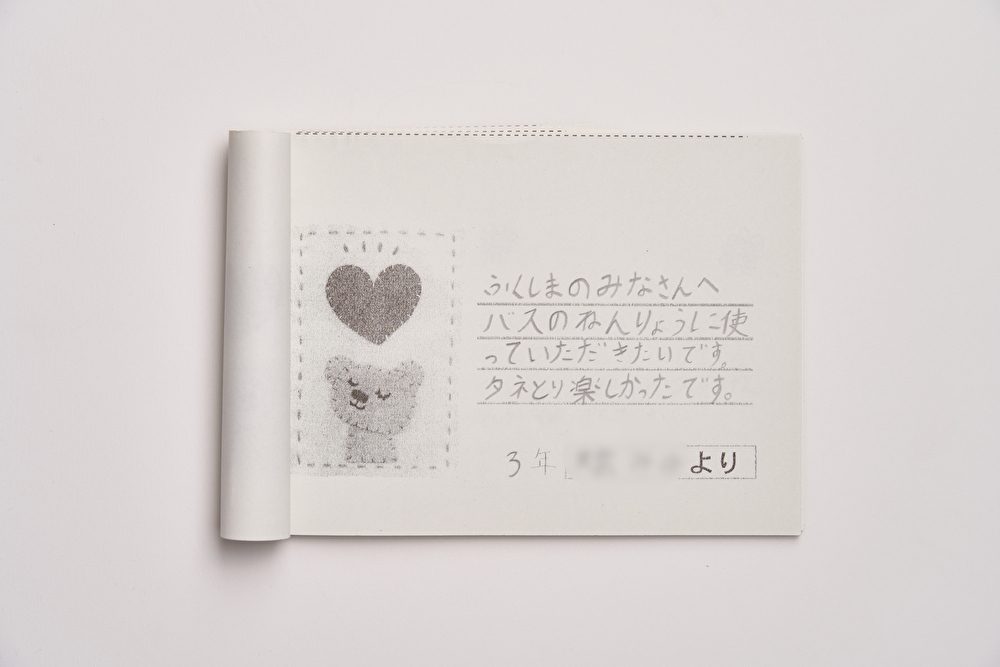 ふくしまのみなさんへ
バスのねんりょうに使
っていただきたいです。
タネとり楽しかったです。
3年 より